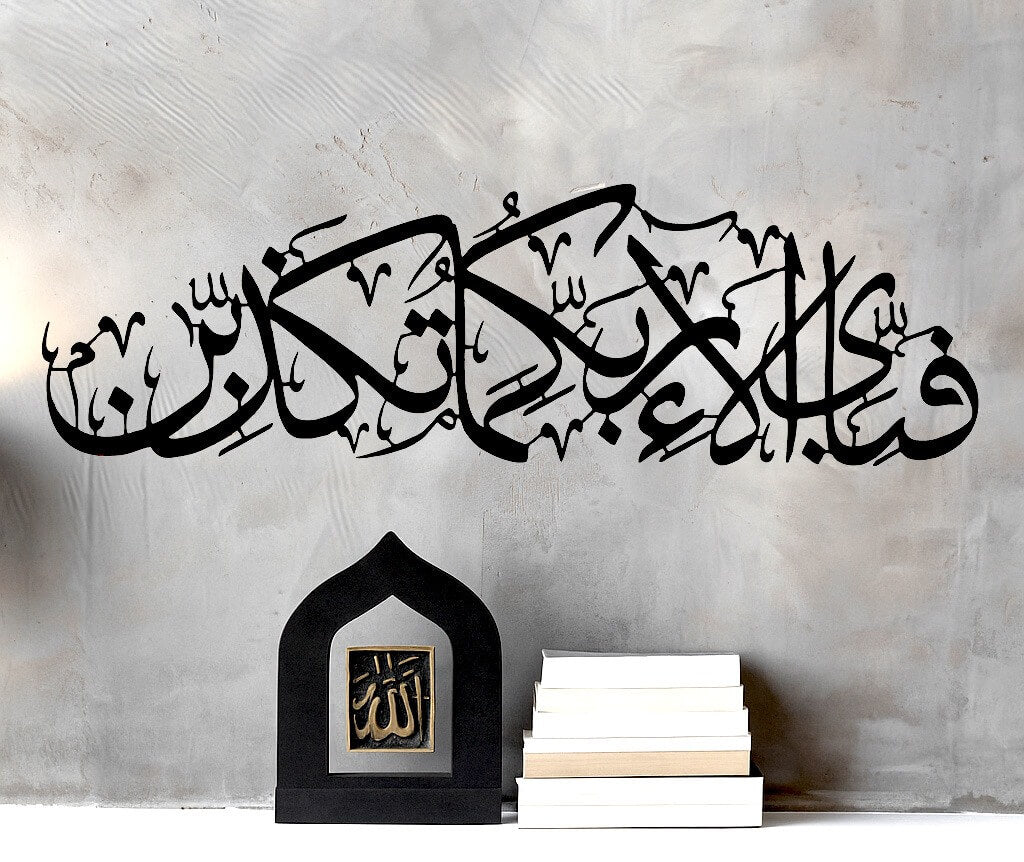 فَبِأَيِّ آلَاءِ رَبِّكُمَا تُكَذِّبَانِ
الله